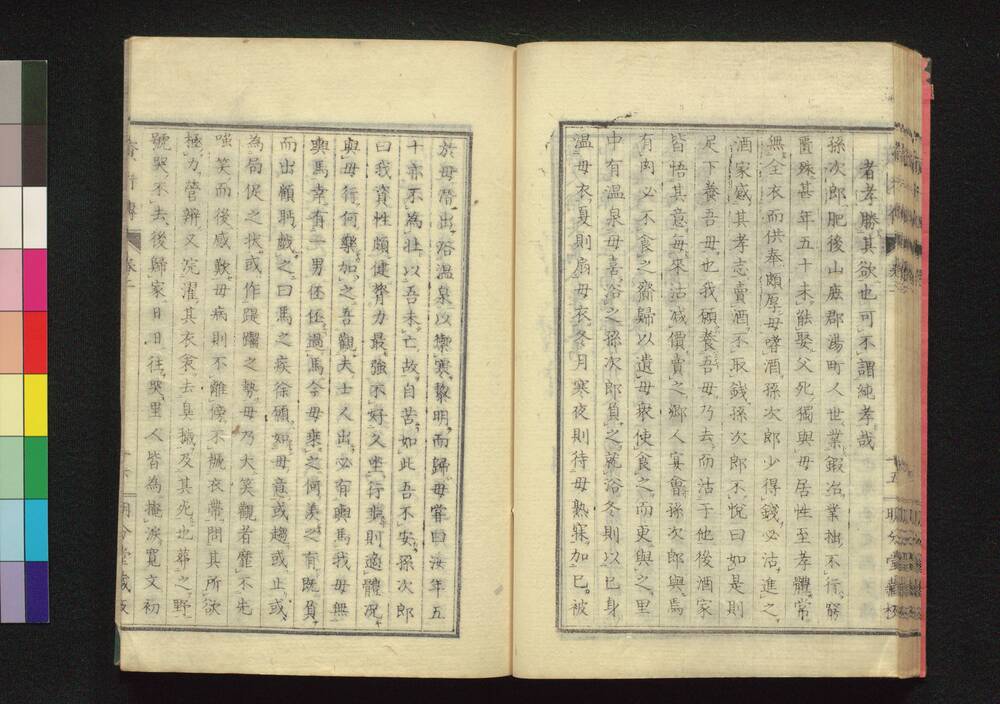 者孝勝其欲也可不謂純孝哉
孫次郎肥後山鹿郡湯町人世業鍜冶業拙不行窮
匱殊甚年五十未能娶父死獨與母居性至孝體常
無全衣而供奉頗厚母嗜酒孫次郎少得錢必沽進之
酒家感其孝志賣酒不取錢孫次郎不悅曰如是則
足下養吾母也我願養吾母乃去而沽于他後酒家
皆悟其意每來沽減價賣之鄉人宴會孫次郎與焉
有肉必不食之齎歸以遺母母使食之而更與之里
中有温泉母喜浴之孫次郎負之就浴冬則以己身
温母衣夏則扇母衣冬月寒夜則待母熟寐加己被
於母潛出浴温泉以禦寒黎明而歸母嘗曰汝年五
十亦不為壯以吾未亡故自苦如此吾不安孫次郎
曰我資性頗健膂力最強不好久坐行步則適體況
與母行何樂加之吾觀夫士人出必有輿馬我母無
輿馬幸有一男伾伾過馬令母乘之何羨之有既負
而出顧眄戲之曰馬之疾徐願知母意或趨或止或
為局促之狀或作踶躅之勢母乃大笑觀者靡不先
嗤笑而後感歎母病則不離傍不襯衣帶問其所欲
極力營辨又浣濯其衣衾去臭穢及其死也葬之野
號哭不去後歸家日日往哭里人皆為揮淚寬文初
十五
明分堂藏板